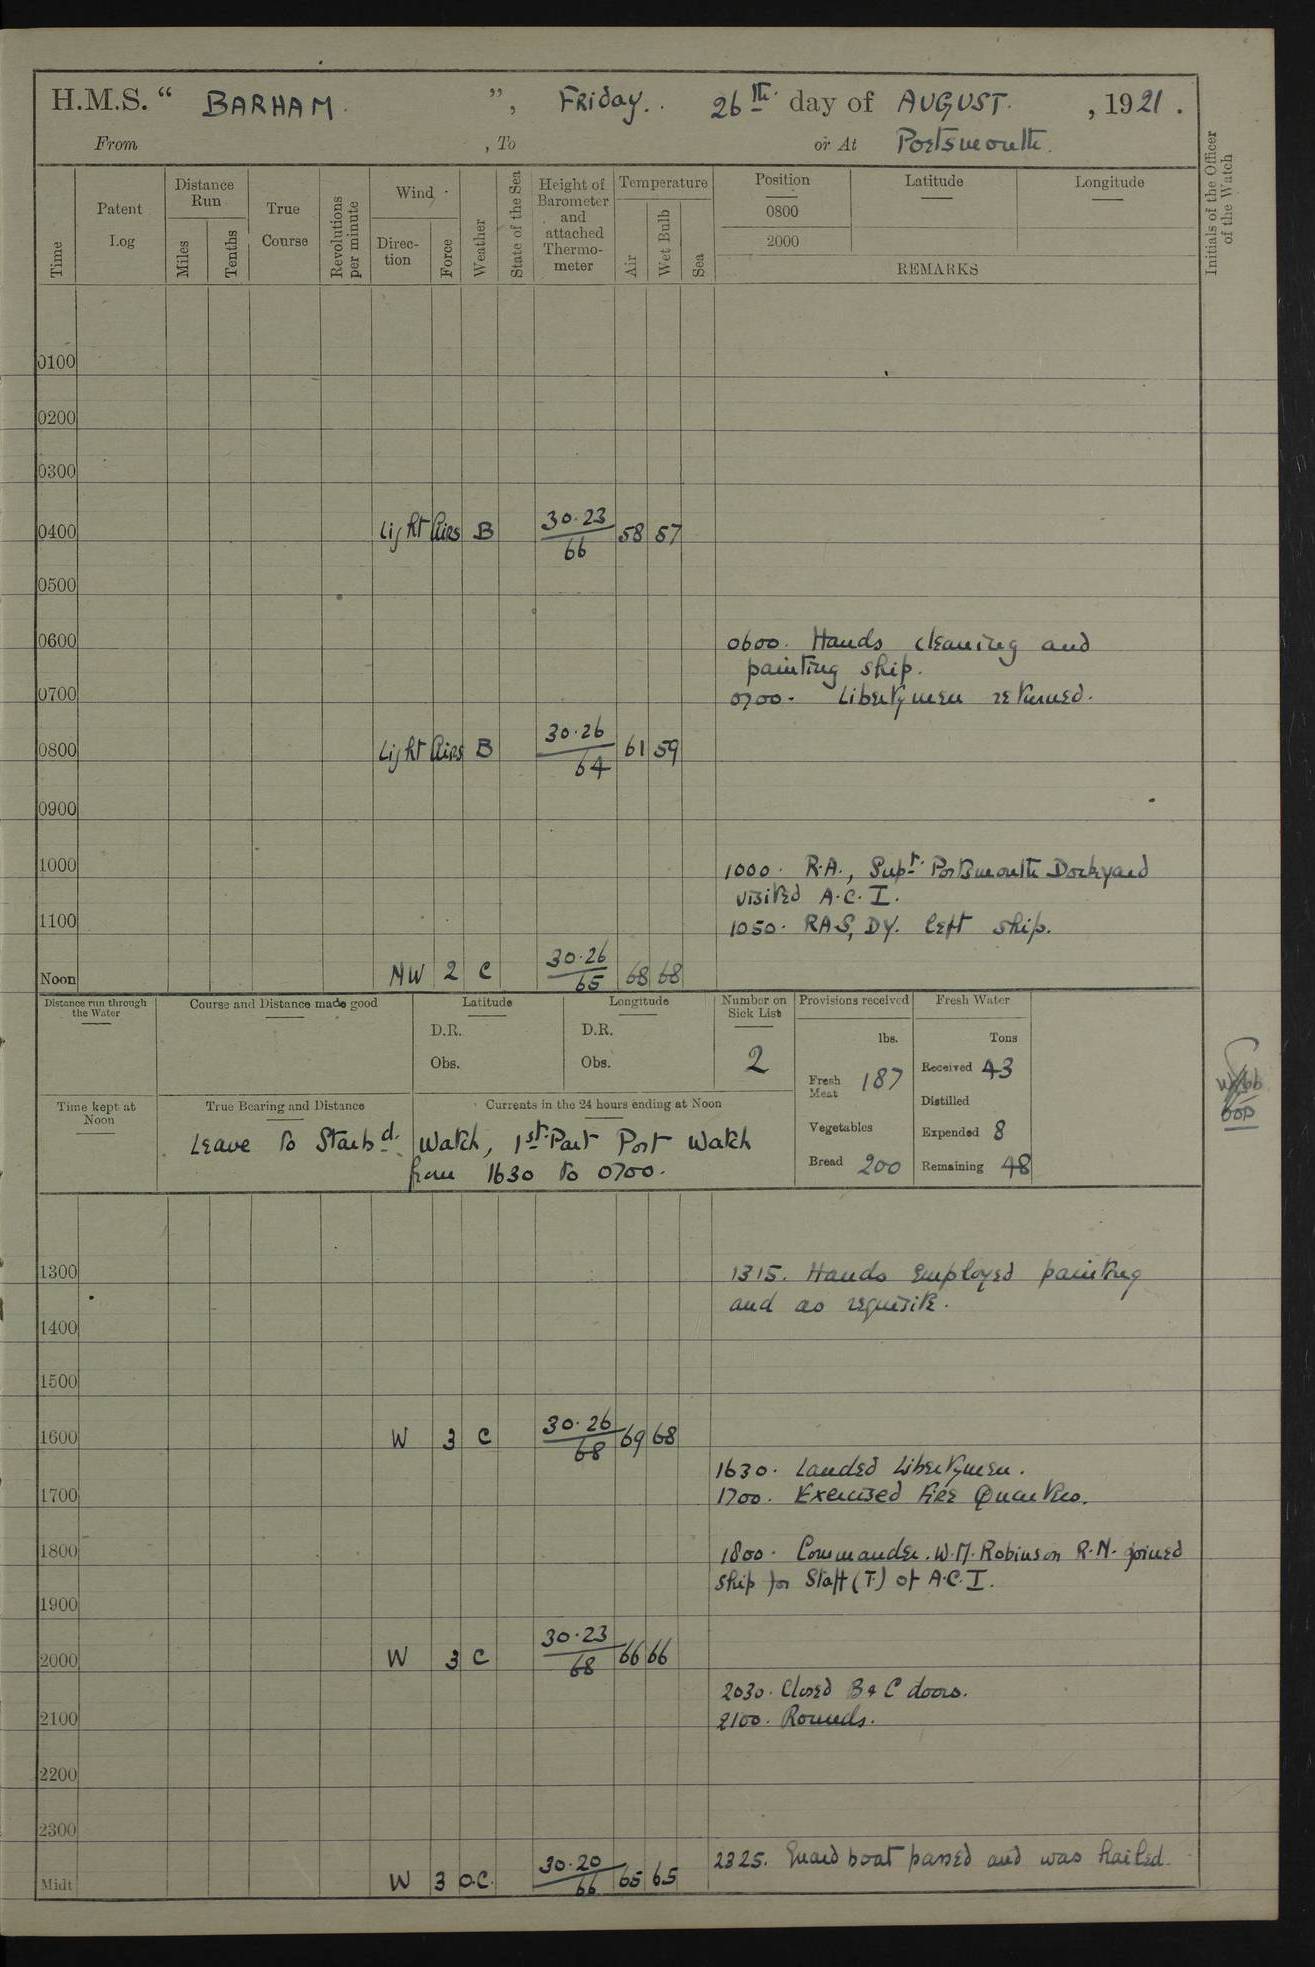 H.M.S. “ BARHAM. ”, Friday. 26th. day of AUGUST. , 1921.
From , To or At Portsmouth.
Time
Patent Log
Distance Run
Miles
Tenths
True Course
Revolutions per minute
Wind
Direc-tion
Force
Weather
State of the Sea
Height of Barometer and attached Thermo-meter
Temperature
Air
Wet Bulb
Sea
Position
0800
2000
Latitude
Longitude
REMARKS
Initials of the Officer of the Watch
0100
0200
0300
0400 Light Airs B 30.23/66 58 57
0500
0600 0600. Hands cleaning and
painting ship.
0700 0700. Libertymen returned.
0800 Light Airs B 30.26/64 61 59
0900
1000 1000. R.A., Supt. Portsmouth Dockyard
visited A.C.I.
1100 1050. RA.S, DY. left ship.
Noon NW 2 C 30.26/65 68 68
Distance run through the Water
Course and Distance made good
Latitude
D.R.
Obs.
Longitude
D.R.
Obs.
Number on Sick List
2
Provisions received
lbs.
Fresh Meat 187
Vegetables
Bread 200
Fresh Water
Tons
Received 43
Distilled
Expended 8
Remaining 48
Time kept at Noon
True Bearing and Distance
Currents in the 24 hours ending at Noon
Leave to Starbd. Watch, 1st Part Port Watch
from 1630 to 0700.
1300 1315. Hands employed painting
and as requisite.
1400
1500
1600 W 3 C 30.26/68 69 68
1630. Landed Libertymen.
1700 1700. Exercised Fire Quarters.
1800 1800. Commander. W.M. Robinson R.N. joined
ship for Staff (T) of A.C.I.
1900
2000 W 3 C 30.23/68 66 66
2030. Closed B & C doors.
2100 2100. Rounds.
2200
2300
2325. Guard boat passed and was hailed.
Midt W 3 O.C. 30.20/66 65 65